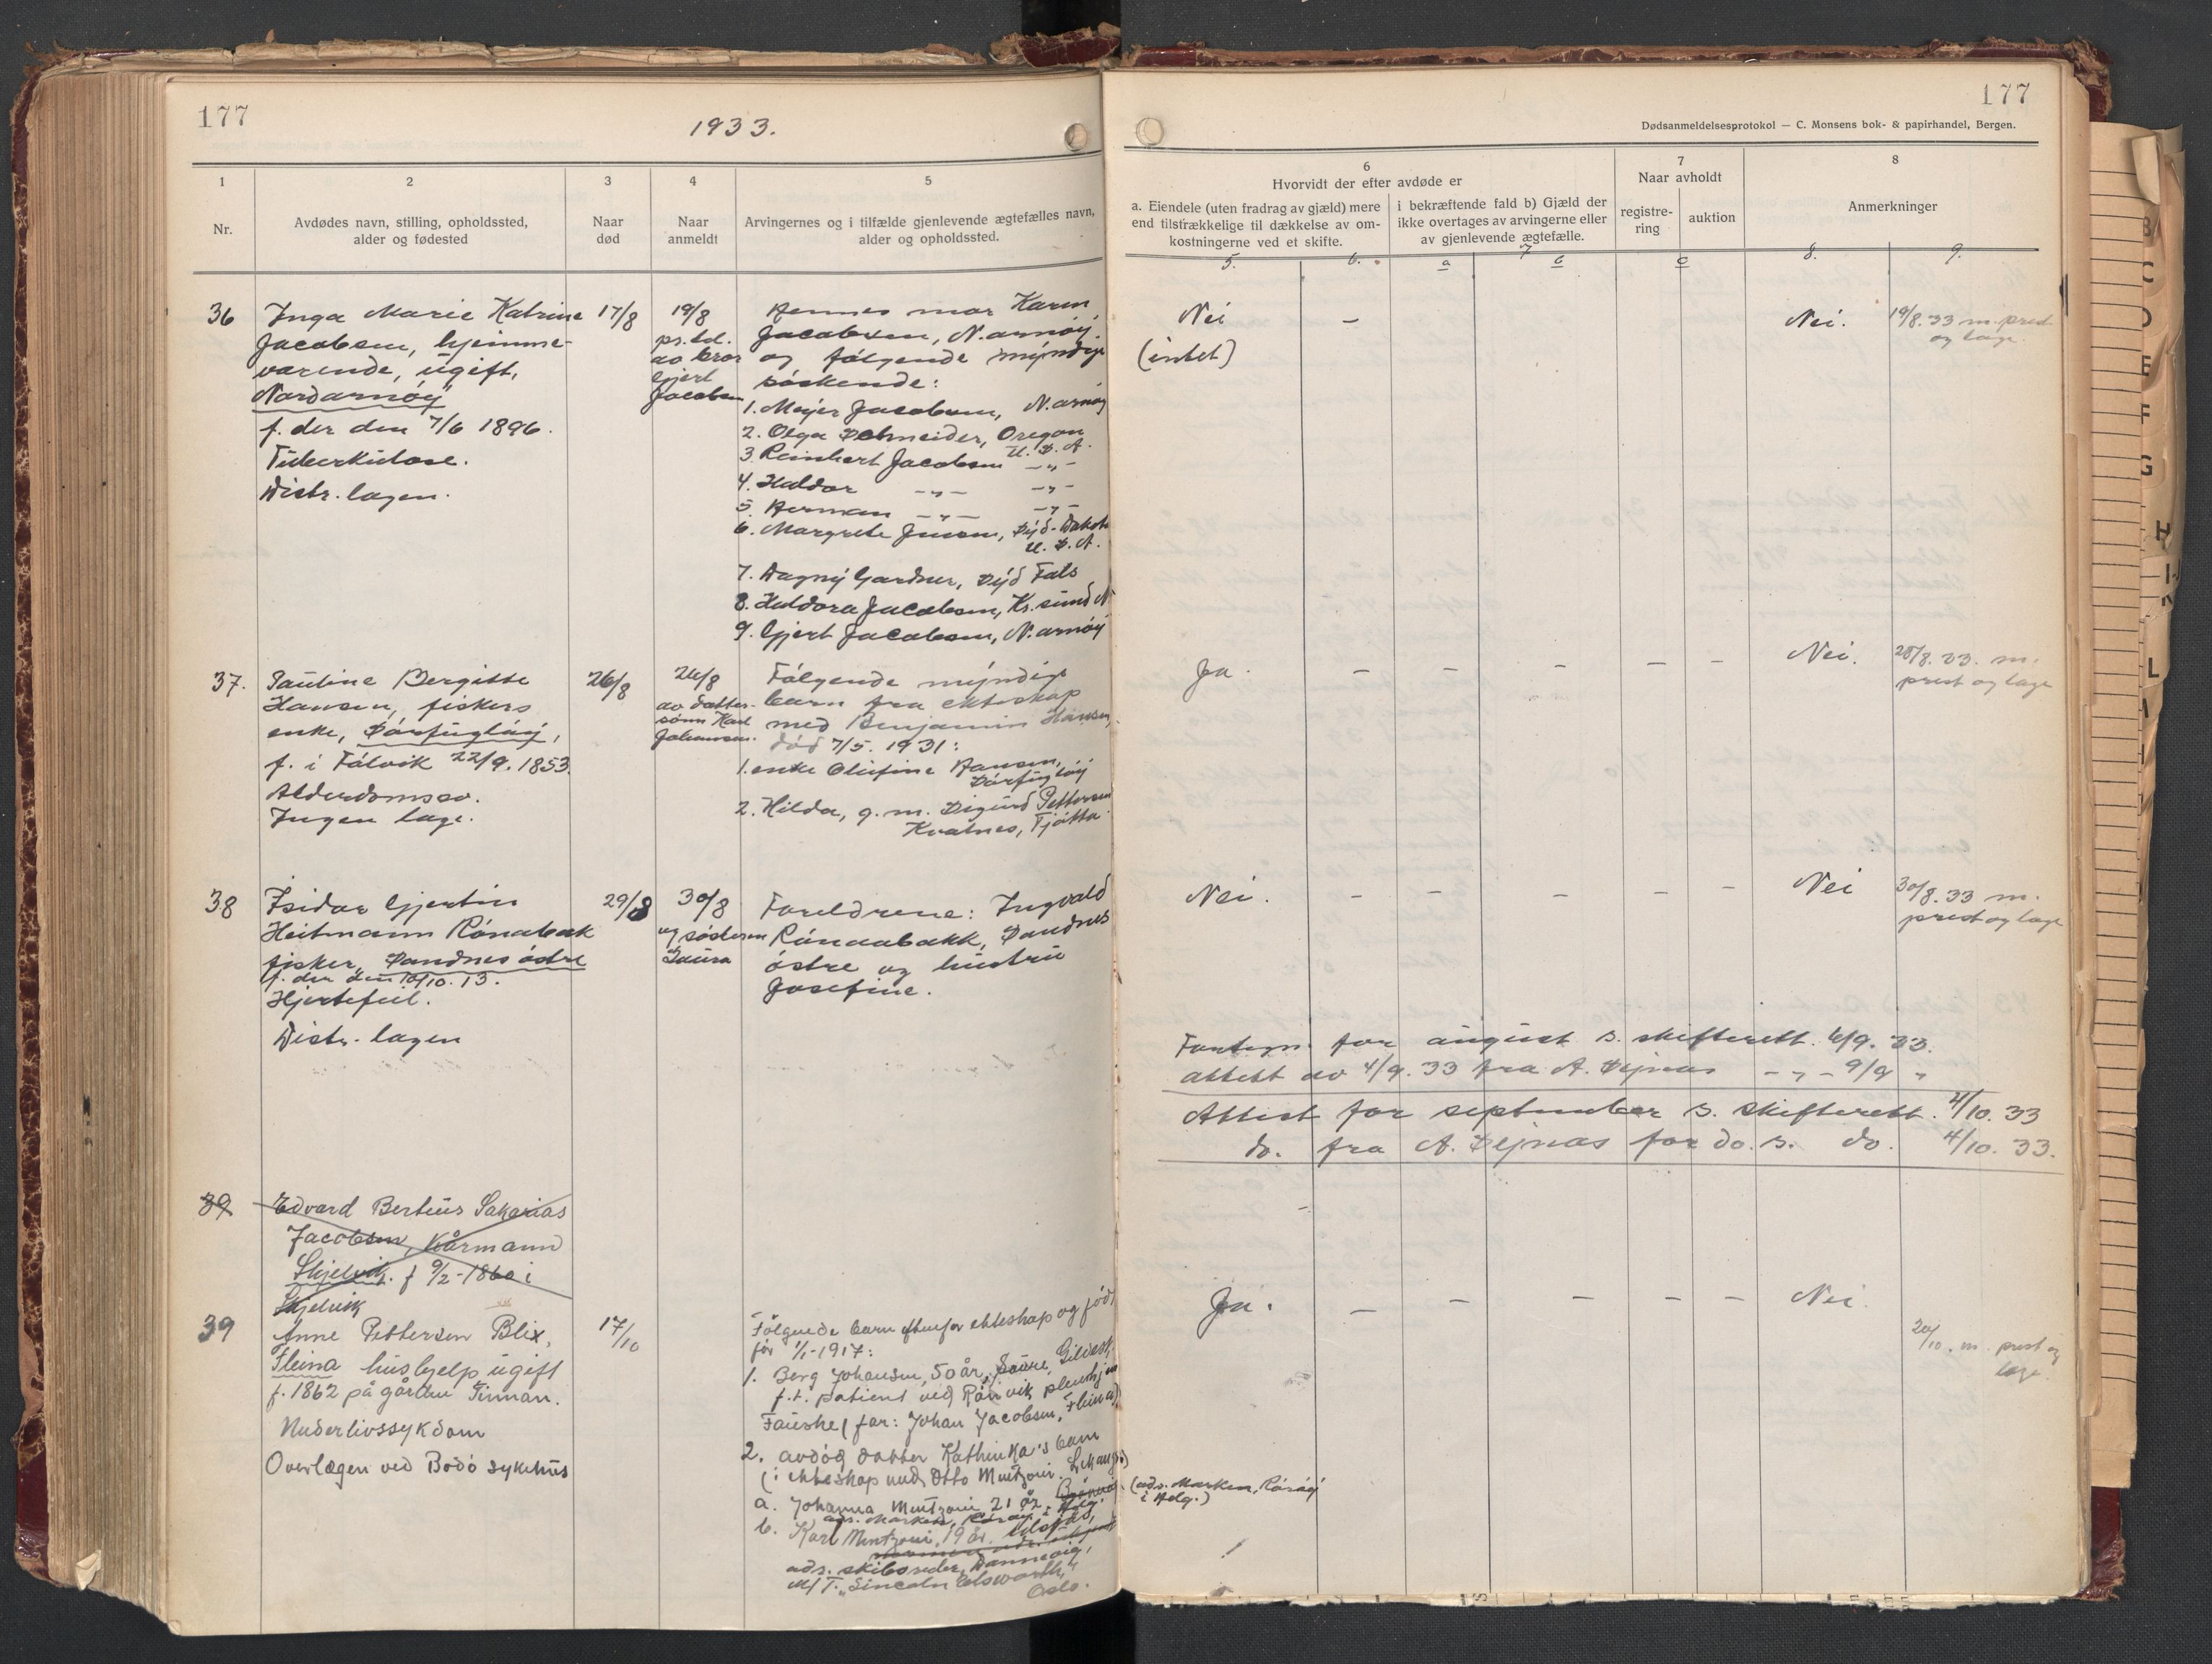 177
1933.
1
2
3
4
5
Nr.
Avdødes navn, stilling, opholdssted,
alder og fødested
Naar
død
Naar
anmeldt
Arvingernes og i tilfælde gjenlevende ægtefælles navn,
alder og opholdssted.
36
Inga Marie Katrine
Jacobsen, hjemme-
værende, ugift,
Nordarnøy
f. der den 7/6 1896.
Tuberkulose.
Distr. lægen.
17/8
19/8
pr. tel.
av bror
Gjert
Jacobsen
Hennes mor Karen
Jacobsen, N. arnøy.
og følgende myndige
søskende:
1. Meyer Jacobsen, N. arnøy
2. Olga Schneider, Oregon
U. S. A.
3. Reinhert Jacobsen -"-
4. Haldor -"- -"-
5. Herman -"- -"-
6. Margrete Jensen, Syd-Dakota
U. S. A.
7. Dagny Gardner, Syd Fals
8. Haldora Jacobsen, Kr. sund N
9. Gjert Jacobsen, N. arnøy
37.
Pauline Bergitte
Hansen, fiskers
enke, Sørfugløy,
f. i Tålvik 22/9. 1853.
Alderdomssv.
Ingen læge.
26/8
26/8
av datter-
sønn Karl
Johansen.
Følgende myndige
barn fra ekteskap
med Benjamin Hansen,
død 7/5. 1931:
1. enke Olufine Hansen,
Sørfugløy
2. Hilda, g. m. Sigurd Pettersen
Kvalnes, Tjøtta.
38
Isidor Gjertin
Heitmann Rønabakk
fisker, Sandnes østre
f. der den 10/10. 13.
Hjertefeil.
Distr. lægen
29/8
30/8
av søsteren
Laura
Foreldrene: Ingvald
Rønaabakk, Sandnes
østre og hustru
Josefine.
39
Edvard Bertius Sakarias
Jacobsen, kårmann
Skjelvik. f 9/2-1860 i
Skjelvik
39
Anne Pettersen Blix,
Fleina hushjelp ugift
f. 1862 på gården Finnan.
Underlivssykdom
Overlægen ved Bodø sykehus
17/10
Følgende barn utenfor ekteskap og født
før 1/1-1917:
1. Berg Johansen, 50 år, Gildesk.
f. t. patient ved Rønvik pleiehjem
Fauske (far: Johan Jacobsen, Fleina)
2. avdød datter Kathinka's barn
(i ekteskap med Otto Mentzoni.
a. Johanna Mentzoni 21 år,
adr. Marken, Rørøy i Helg.
b. Karl Mentzoni, 19 år.
adr. skibsreder Dannevig,
M/T. "Lincoln Elsworth",
Oslo.
177
Dødsanmeldelsesprotokol — C. Monsens bok- & papirhandel, Bergen.
6
Hvorvidt der efter avdøde er
a. Eiendele (uten fradrag av gjæld) mere
end tilstrækkelige til dækkelse av om-
kostningerne ved et skifte.
i bekræftende fald b) Gjæld der
ikke overtages av arvingerne eller
av gjenlevende ægtefælle.
7
Naar avholdt
registre-
ring
auktion
8
Anmerkninger
5.
6.
a
7
b
c
8.
9.
Nei
(intet)
–
Nei.
19/8. 33 m. prest
og læge.
Ja.
– – – – –
Nei.
28/8. 33. m.
prest og læge
Nei.
– – – – –
Nei
30/8. 33 m.
prest og læge
Fortegn. for august s. skifterett. 6/9. 33.
attest av 4/9. 33 fra A. Sejnæs -"- 9/9 "
Attest for september s. skifterett. 4/10. 33
do. fra A. Sejnæs for do. s. do. 4/10. 33.
Ja.
– – – – –
Nei.
20/10. m. prest og
læge.
(adr. Marken, Rørøy
i Helg.)